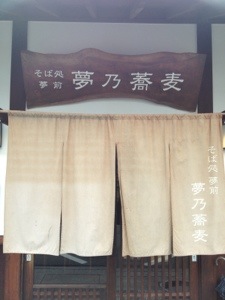 そば処
夢前
夢乃蕎麦
そば処 夢前
夢乃蕎麦